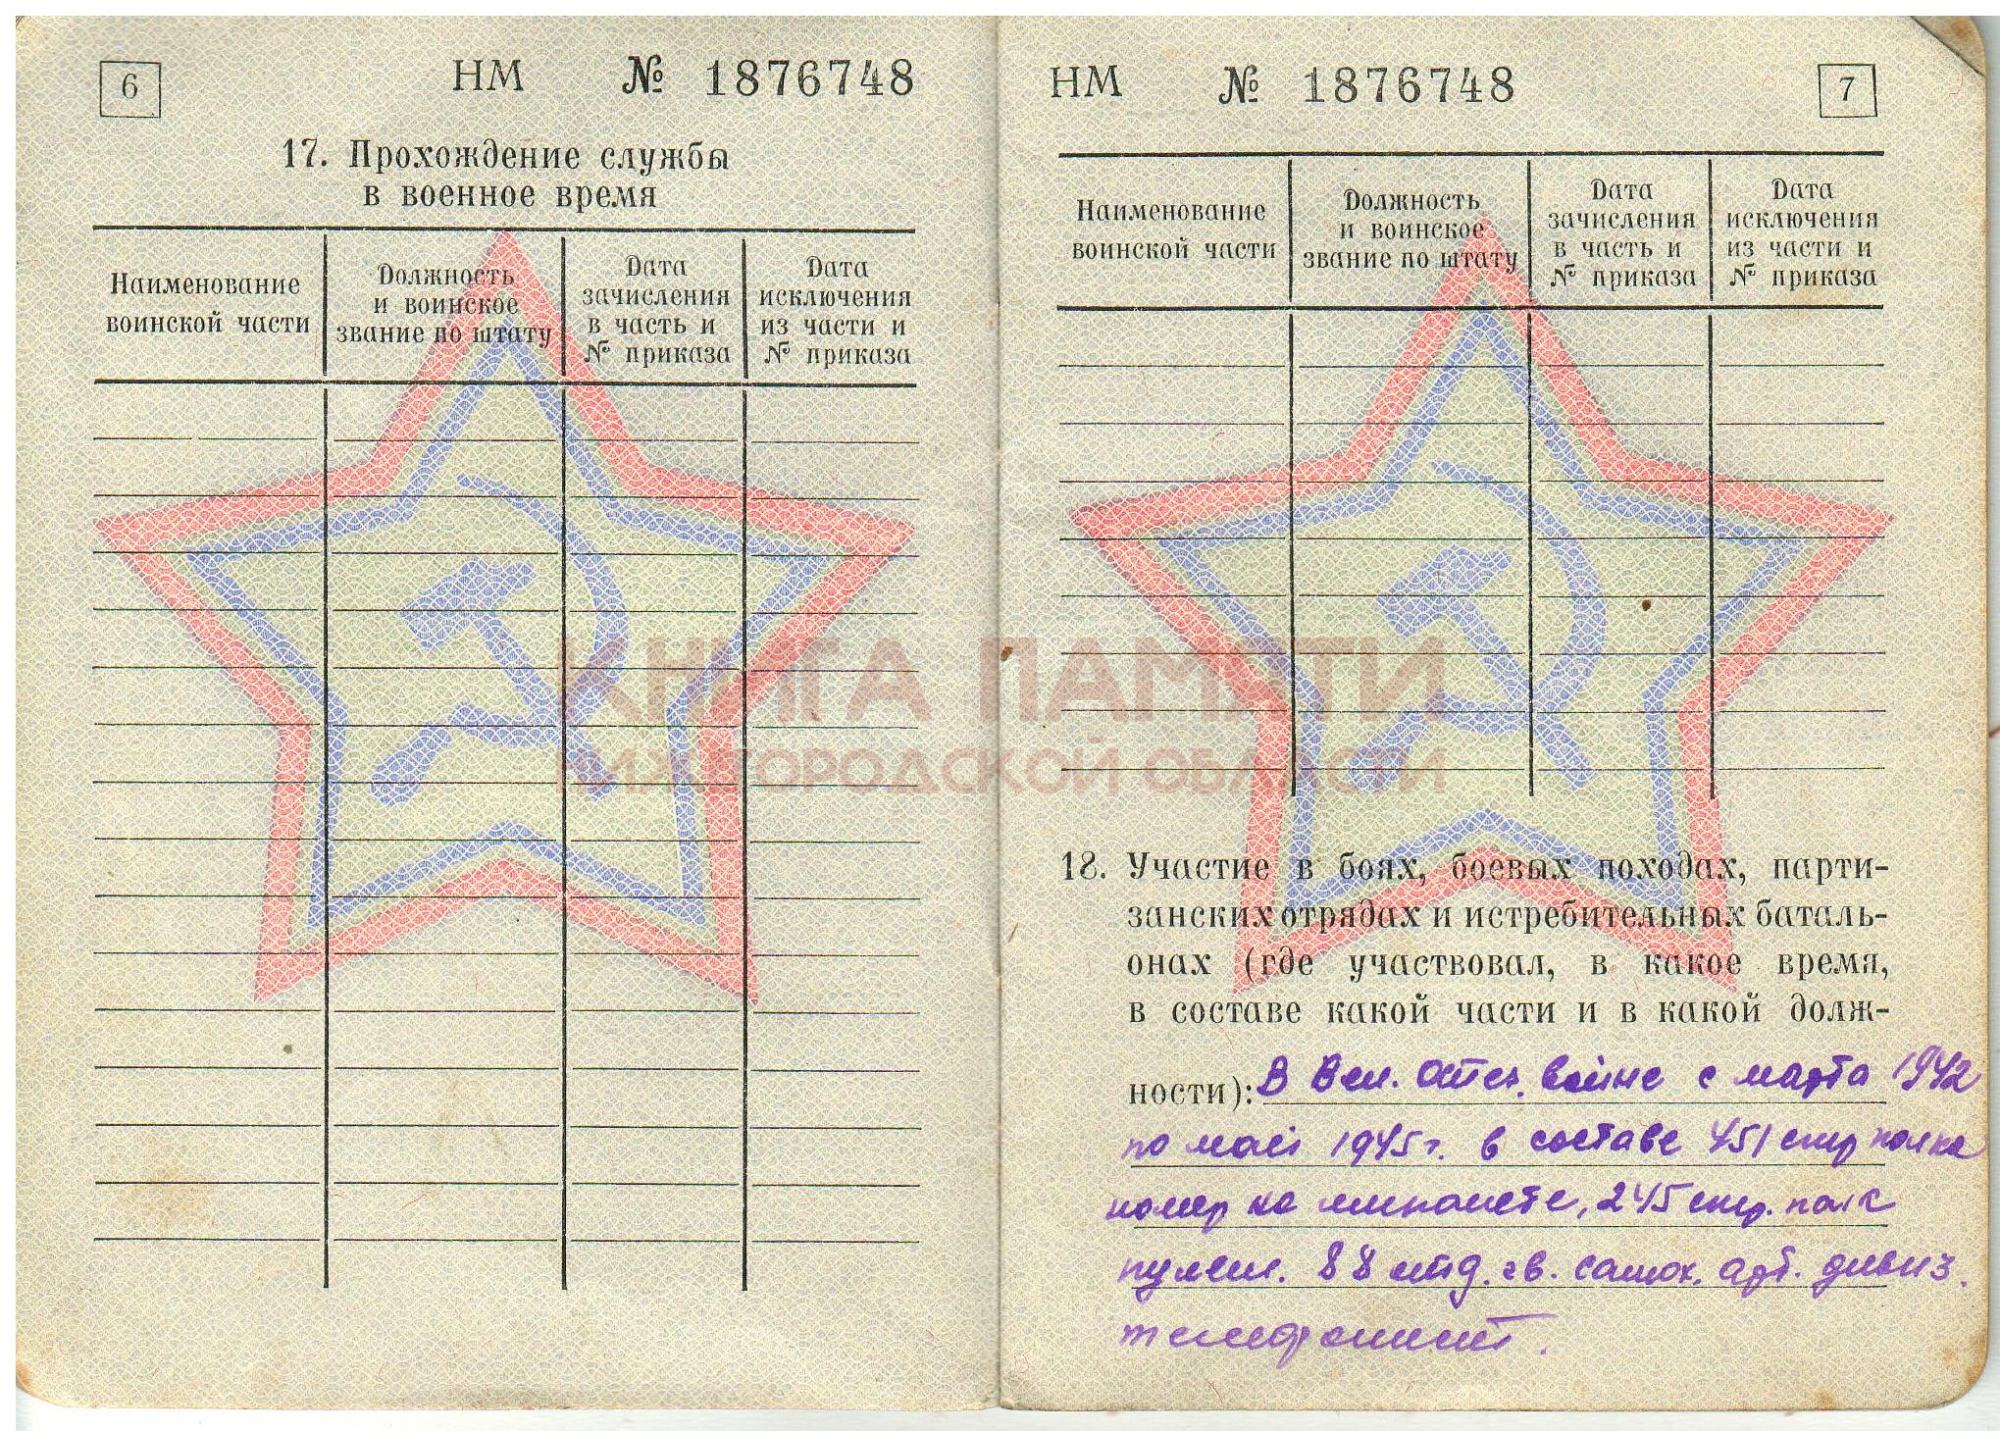 6
НМ № 1876748
17. Прохождение службы
в военное время
Наименование
воинской части
Должность
и воинское
звание по штату
Дата
зачисления
в часть и
№ приказа
Дата
исключения
из части и
№ приказа
НМ № 1876748
7
Наименование
воинской части
Должность
и воинское
звание по штату
Дата
зачисления
в часть и
№ приказа
Дата
исключения
из части и
№ приказа
КНИГА ПАМЯТИ
НИЖЕГОРОДСКОЙ ОБЛАСТИ
18. Участие в боях, боевых походах, парти-
занских отрядах и истребительных баталь-
онах (где участвовал, в какое время,
в составе какой части и в какой долж-
ности): В Вел. Отеч. войне с марта 1942
по май 1945 г. в составе 451 стр полка
номер на миномете, 245 стр. полк
пулем. 88 отд. гв. самох. арт. дивиз.
телефонист.